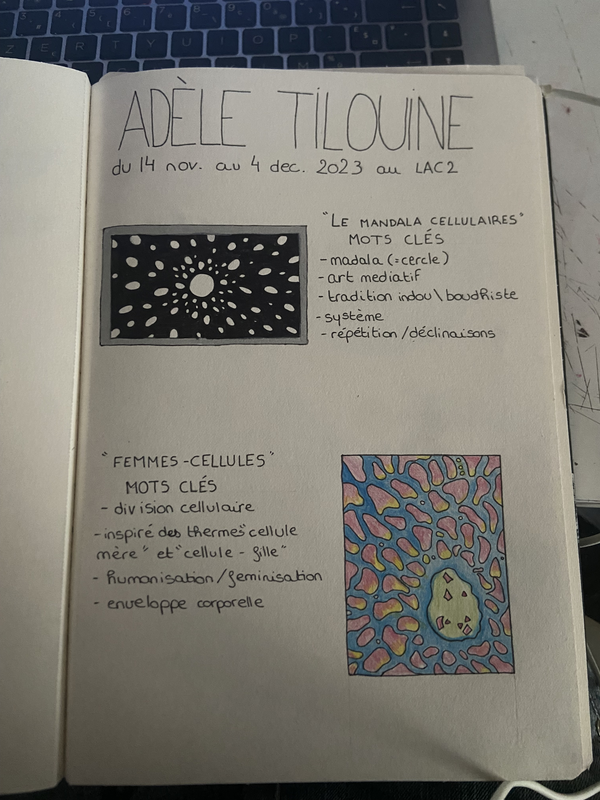 ADÈLE TILOUINE
du 14 nov. au 4 dec. 2023 au LAC2
"LE MANDALA CELLULAIRES"
MOTS CLÉS
- madala (=cercle)
- art mediatif
- tradition indou\boudhiste
- système
- répétition/déclinaisons
"FEMMES-CELLULES"
MOTS CLÉS
- division cellulaire
- inspiré des thermes "cellule
mère" et "cellule-fille"
- humanisation/feminisation
- enveloppe corporelle